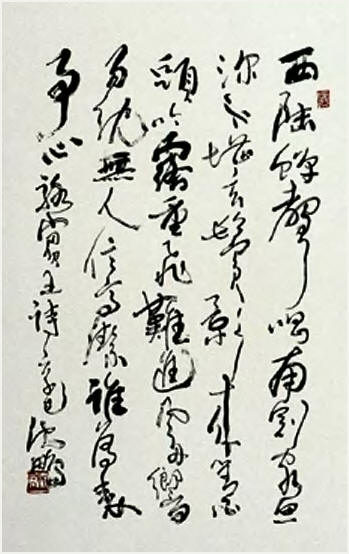 西陸蟬聲唱南冠客思
深不堪玄鬢景來對白
頭吟露重飛難進風多響
易沈無人信高潔誰為表
予心 駱賓王詩 沈鵬